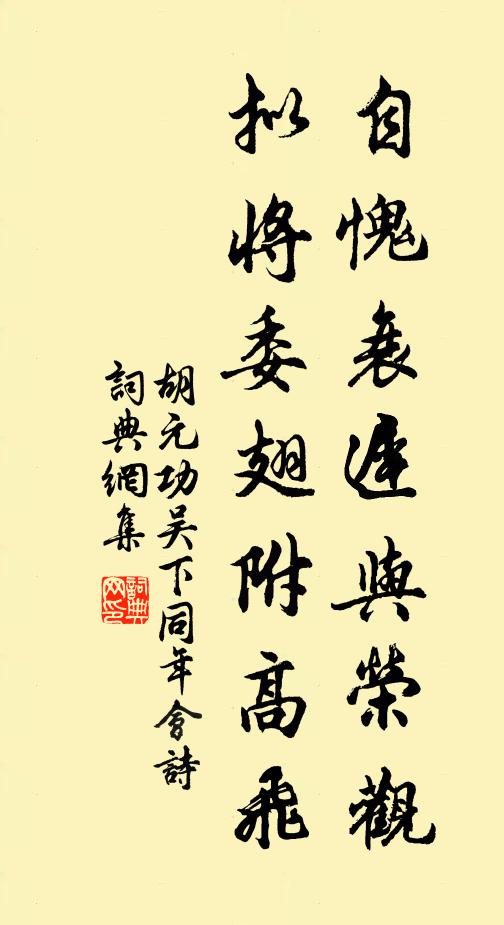 自愧衰遲與榮觀
擬將委翅附高飛
胡元功吳下同年會詩
詞典網集
詞典網印